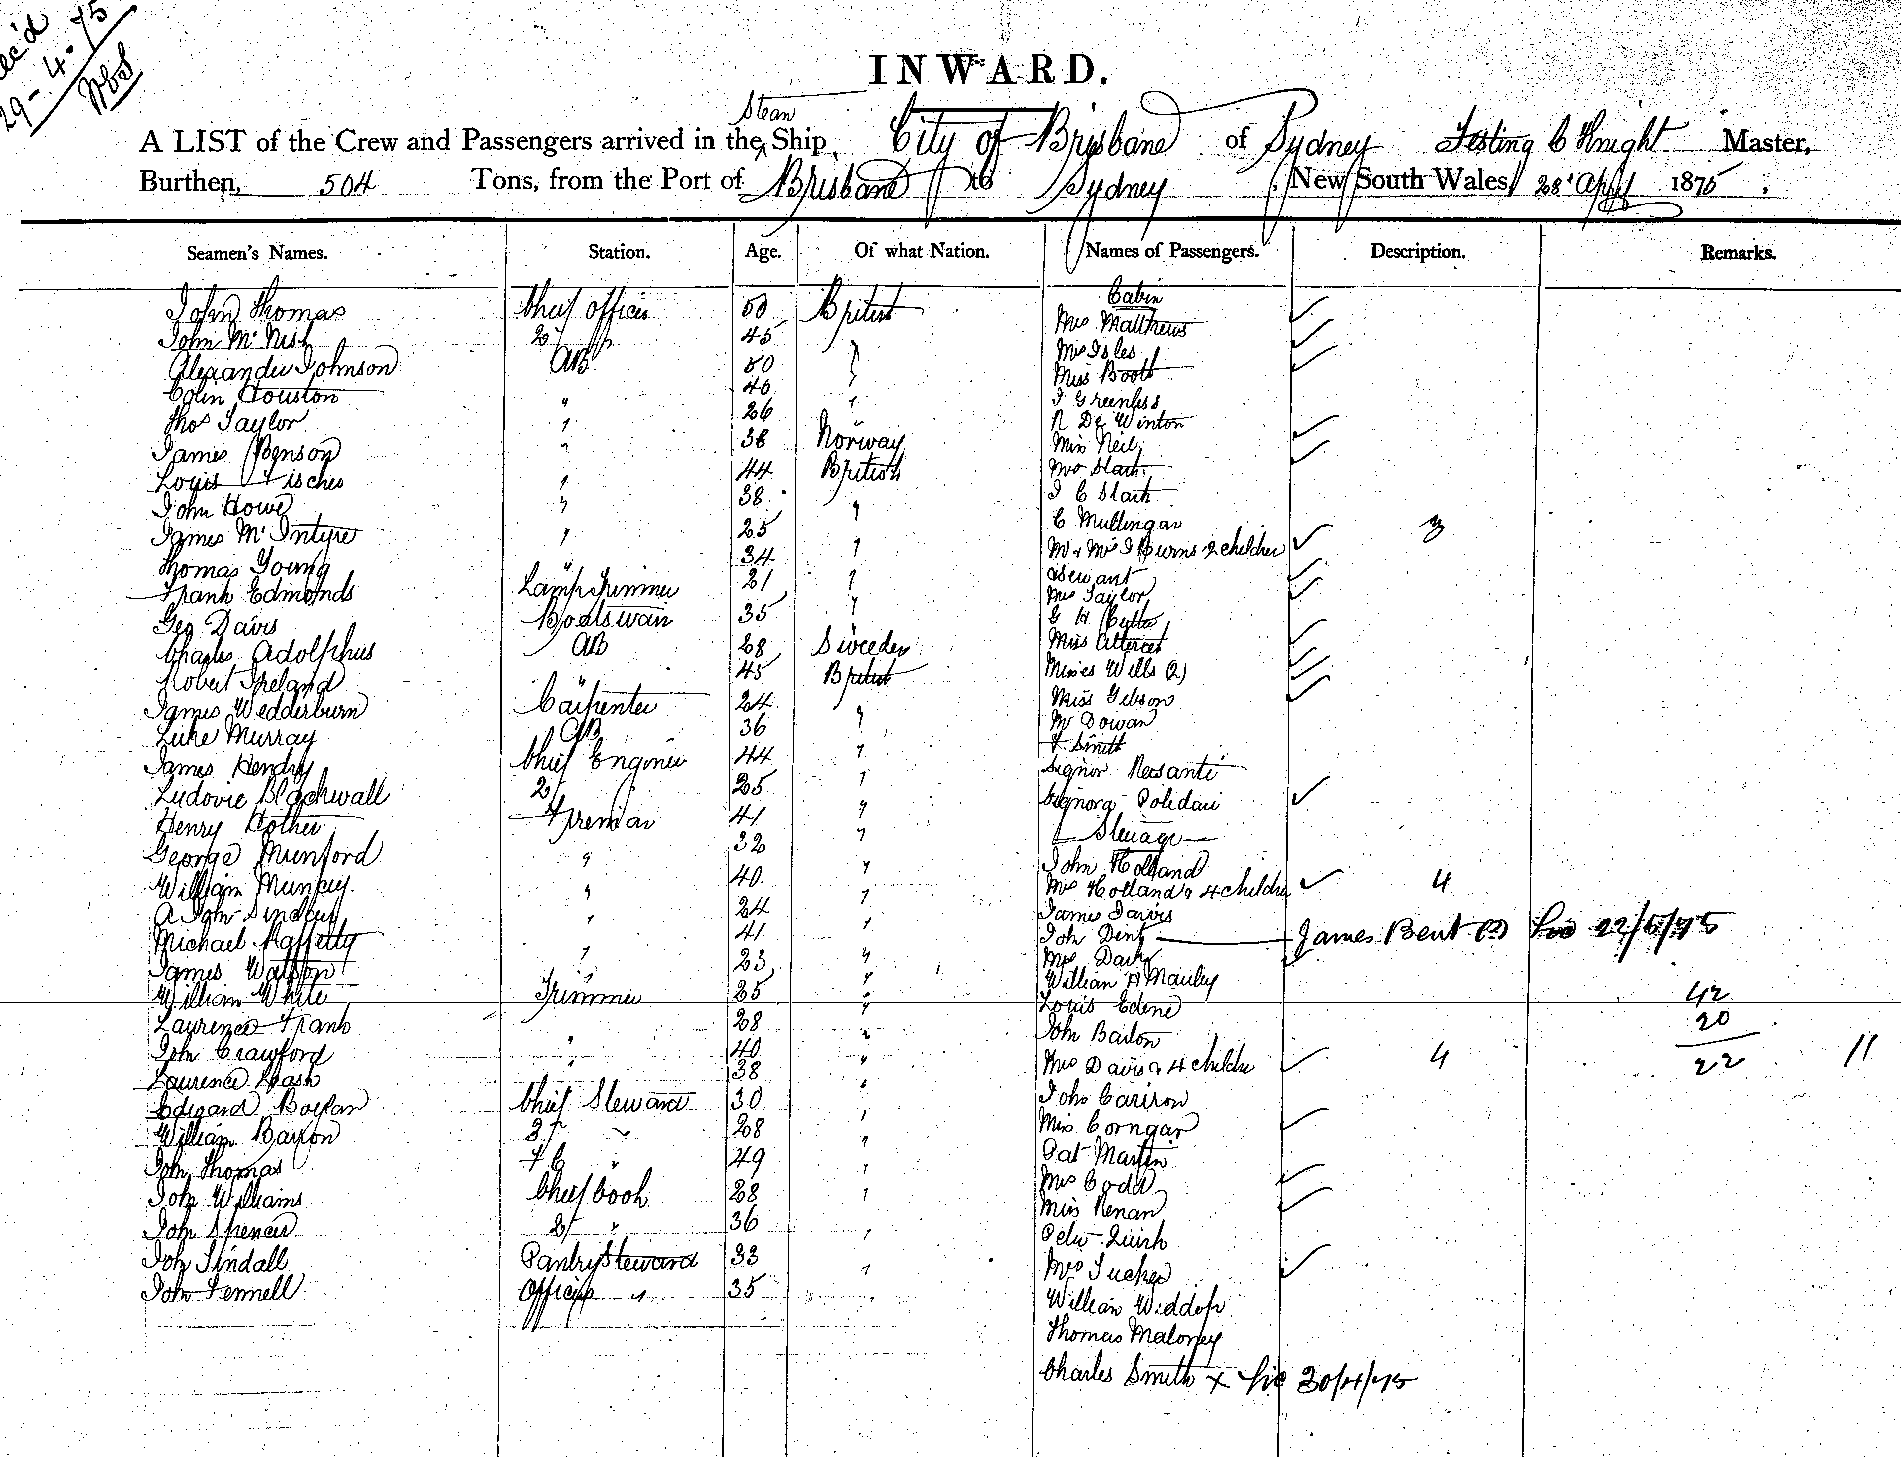 Rec'd
29-4-75
INWARD.
Steam
A LIST of the Crew and Passengers arrived in the Ship City of Brisbane of Sydney Knight Master,
Burthen, 504 Tons, from the Port of Brisbane to Sydney New South Wales, 28 April 1875
Seamen's Names. Station. Age. Of what Nation. Names of Passengers. Description. Remarks.
Cabin
John Thomas Chief officer 50 British Mrs Matthews
John McNish 2d 45 " Mrs Isles
Alexander Johnson AB 50 " Miss Booth
Colin Houston " 40 " J Greenless
Thos Taylor " 26 R De Winton
James Benson " 38 Norway Miss Neil
Louis Fischer " 44 British Mrs Stark
John Howe " 38 " J C Stark
James McIntyre " 25 " C Mullingar
Thomas Young " 34 " Mr & Mrs J Burns & children 3
Frank Edmonds Lamp trimmer 21 " Servant
Mrs Taylor
Geo Davis Boatswain 35 " G H
Charles Adolphus AB 28 Sweeden Miss
Robert Ireland " 45 British Misses Wills (2)
James Wedderburn Carpenter 24 " Miss Gibson
Luke Murray AB 36 " Mr Dowan
F Smith
James Hendry Chief Engineer 44 " Signor
Ludovic Blackwall 2d 25 " Signora
Henry Fireman 41 " Steerage
George Munford " 32 " John Holland
William " 40 " Mrs Holland & 4 children 4
A John " 24 " James Davis
Michael Rafferty " 41 " John Dent James Bent
Mrs
James Watson " 23 " William H Manley
William White Trimmer 25 " Louis Edene 42
Laurence Frank " 28 " John Barton 20
John Crawford " 40 " Mrs Davis & 4 children 4 22 11
Laurence 38 "
Edward Chief Steward 30 " John
William Barron 2d " 28 " Miss Corngan
John Thomas F C " 49 " Pat Martin
Mrs Codd
John Williams Chief Cook 28 " Miss Renan
John Spencer 2d " 36 " Peter Quirk
John Tindall Pantry Steward 33 " Mrs Tucker
John Fennell Officers " 35 " William Widdop
Thomas Maloney
Charles Smith x